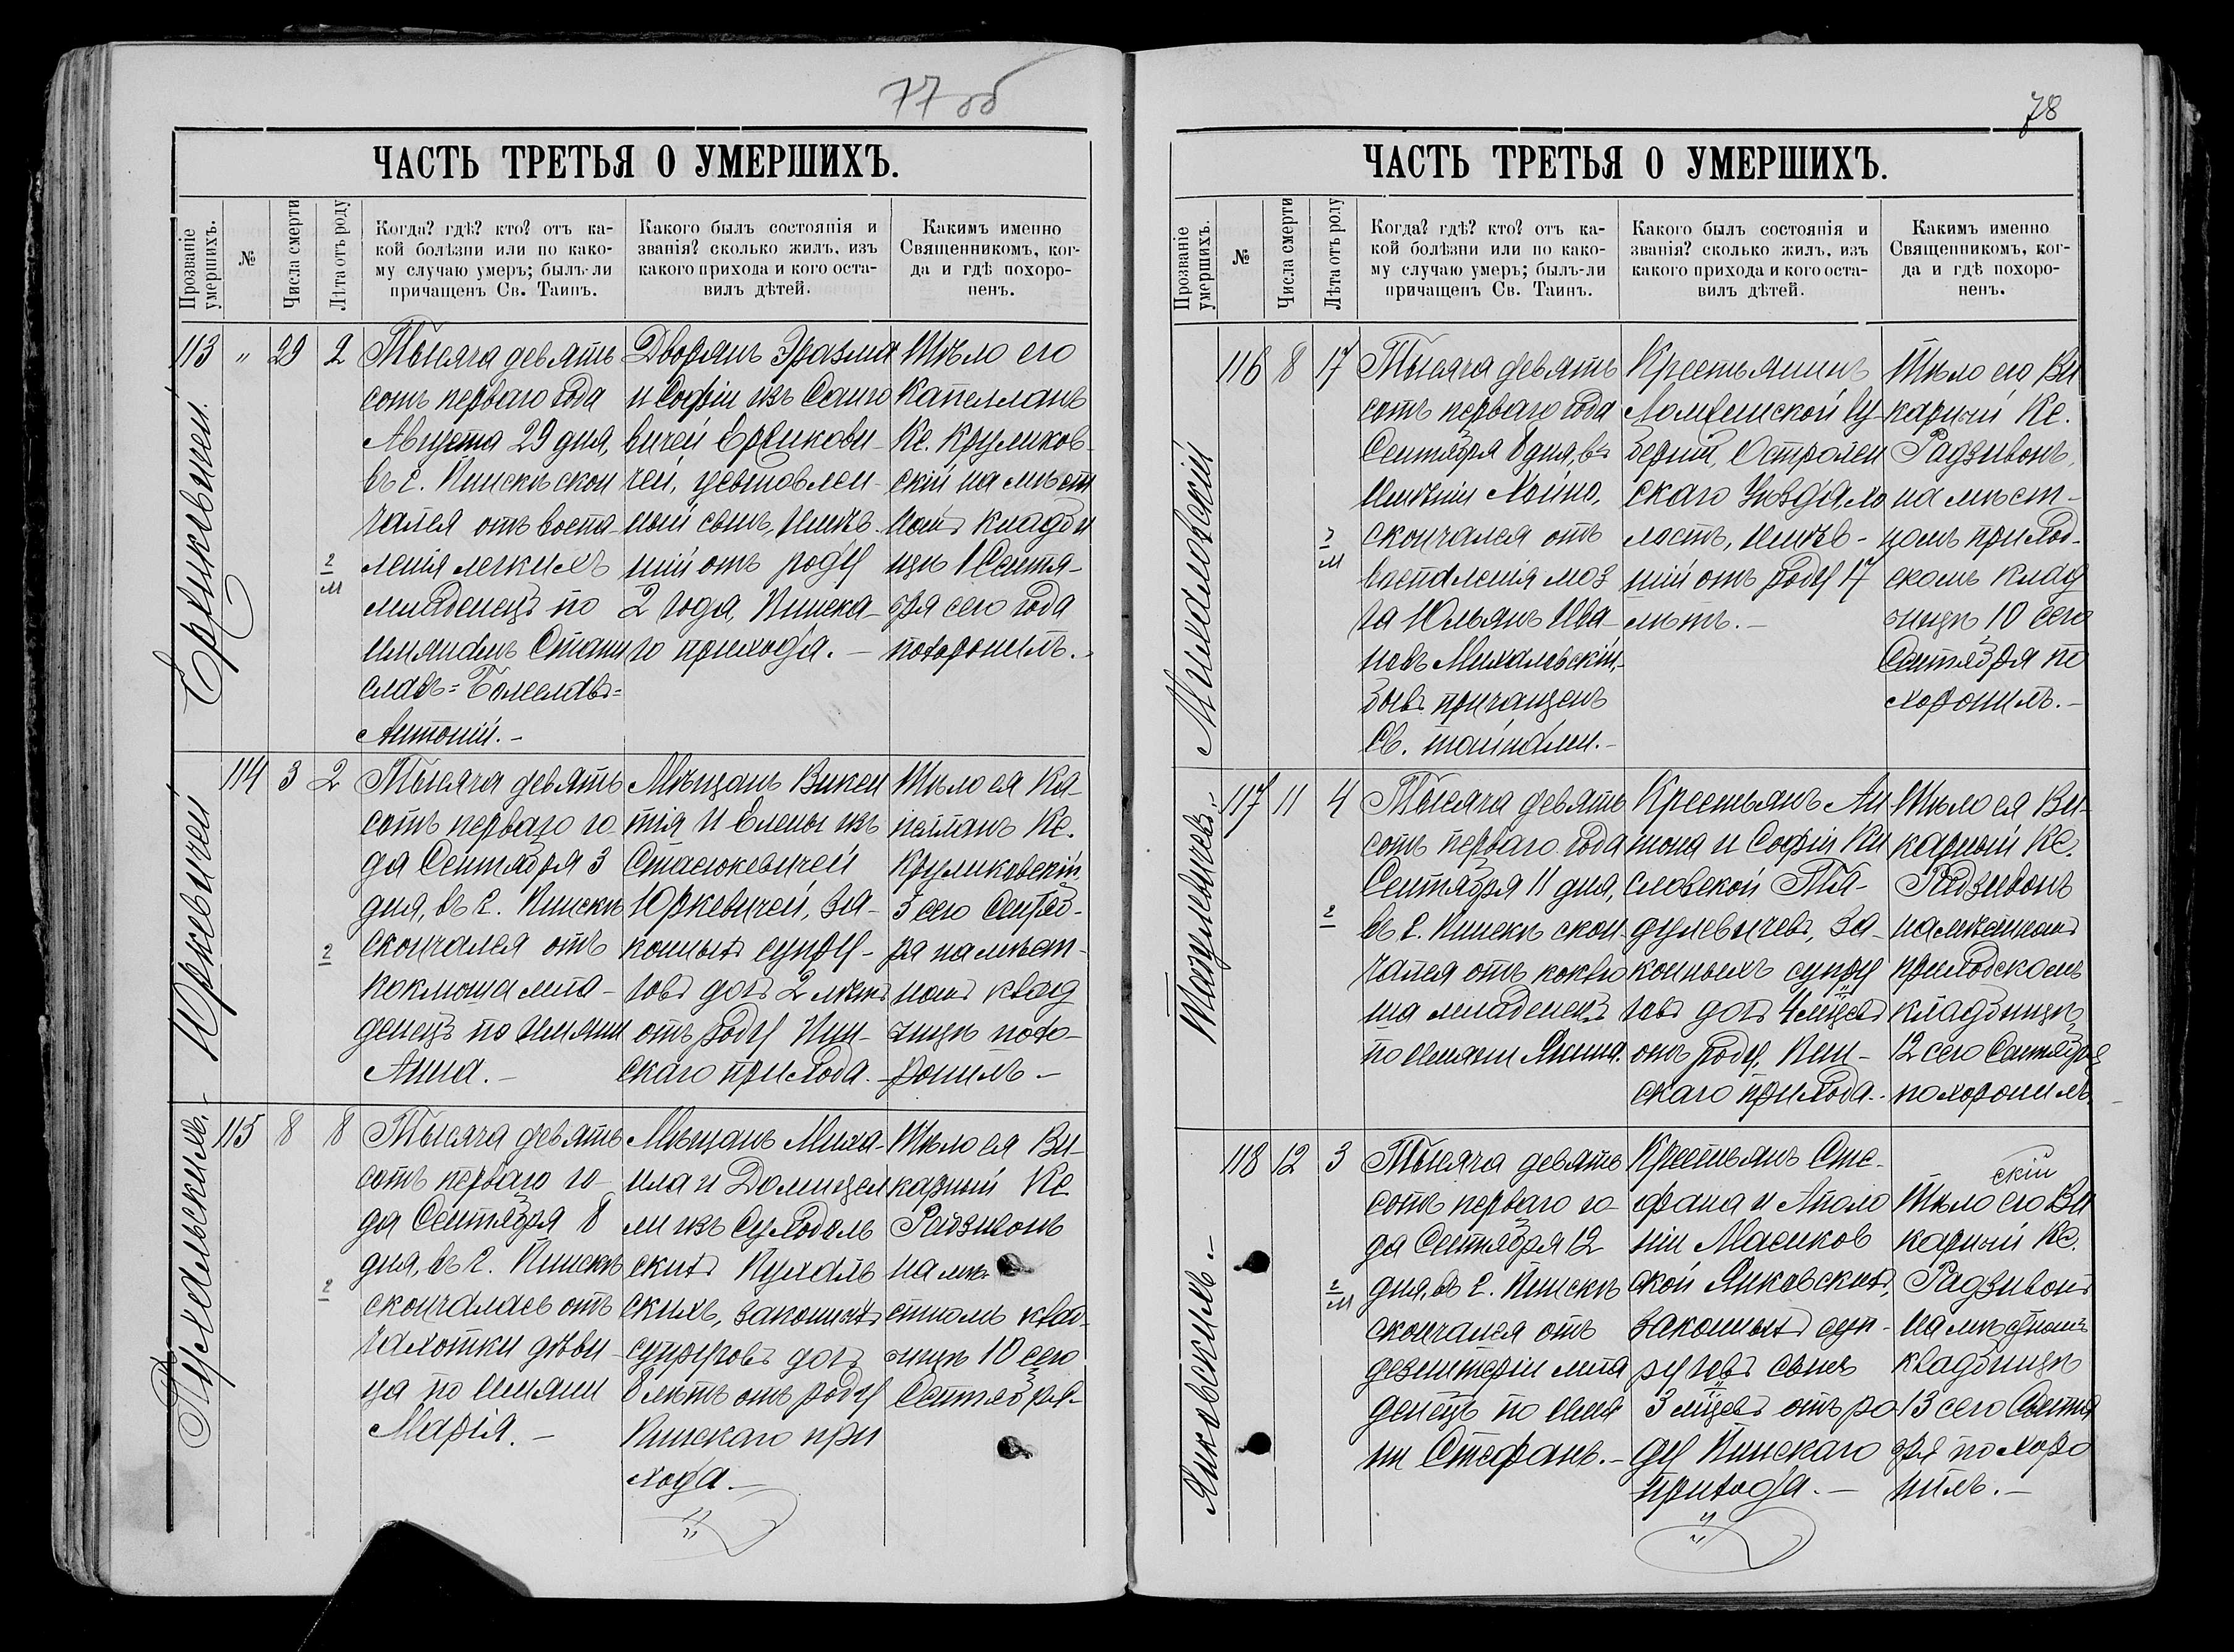 77 об
ЧАСТЬ ТРЕТЬЯ О УМЕРШИХЪ.
Прозваніе умершихъ.
№
Числа смерти
Лѣта отъ роду
Когда? гдѣ? кто? отъ ка-
кой болѣзни или по како-
му случаю умеръ; былъ-ли
причащенъ Св. Таинъ.
Какого былъ состоянія и
званія? сколько жилъ, изъ
какого прихода и кого оста-
вилъ дѣтей.
Какимъ именно
Священникомъ, ког-
да и гдѣ похоро-
ненъ.
113 „ 29 2
Тысяча девять
сотъ перваго года
Августа 29 дня,
въ г. Пинскѣ скон
чался отъ воспа-
ленія легкихъ
младенецъ по
имянамъ Стани
славъ=Болеславъ=
Антоній.-
Дворянъ Эразма
и Софіи изъ
вичей
чей,
ный сынъ, имѣв-
шій отъ роду
2 года, Пинска-
го прихода.-
Тѣло его
Капелланъ
Кс. Круликов-
скій на мѣст
номъ кладби
щѣ 1 Сентя-
бря сего года
похоронилъ.-
Юркевичей
114 3 2
Тысяча девять
сотъ перваго го-
да Сентября 3
дня, въ г. Пинскѣ
скончался отъ
коклюша мла-
денецъ по имяни
Анна.-
Мѣщанъ Викен
тія и Елены изъ
Стасюкевичей
Юркевичей, за-
конныхъ супру-
говъ дочь 2 лѣтъ
отъ роду Пин-
скаго прихода.-
Тѣло ея Ка-
пелланъ Кс.
Круликовскій
3 сего Сентяб-
ря на мѣст-
номъ клад
бищѣ похо-
ронилъ-
Пухальскихъ.-
115 8 8
Тысяча девять
сотъ перваго го-
да Сентября 8
дня, въ г. Пинскѣ
скончалась отъ
чахотки дѣви-
ца по имяни
Марія.-
Мѣщанъ Миха-
ила и Домицел
ли изъ Суходоль
скихъ Пухаль
скихъ, законныхъ
супруговъ дочь
8 лѣтъ отъ роду
Пинскаго при
хода.-
Тѣло ея Ви-
карный Кс
Радзивонъ
на мѣ-
стномъ клад-
бищѣ 10 сего
Сентября-
78
ЧАСТЬ ТРЕТЬЯ О УМЕРШИХЪ.
Прозваніе умершихъ.
№
Числа смерти
Лѣта отъ роду
Когда? гдѣ? кто? отъ ка-
кой болѣзни или по како-
му случаю умеръ; былъ-ли
причащенъ Св. Таинъ.
Какого былъ состоянія и
званія? сколько жилъ, изъ
какого прихода и кого оста-
вилъ дѣтей.
Какимъ именно
Священникомъ, ког-
да и гдѣ похоро-
ненъ.
Михаловскій
116 8 17
Тысяча девять
сотъ перваго года
Сентября 8 дня, въ
имѣніи
скончался отъ
воспаленія моз
га Юльянъ Ива-
новъ Михаловскій,
бывъ причащенъ
Св. тайнами.-
Крестьянинъ
Ломжинской гу-
берніи, Остролен
скаго Уѣзда, хо
лостъ, имѣв-
шій отъ роду 17
лѣтъ.-
Тѣло его Ви
карный Кс.
Радзивонъ,
на мѣст-
номъ приход-
скомъ клад
бищѣ 10 сего
Сентября по
хоронилъ.-
117 11 4
Тысяча девять
сотъ перваго года
Сентября 11 дня,
въ г. Пинскѣ скон-
чался отъ коклю
ша младенецъ
по имяни Янина.
Крестьянъ Ан
тона и Софіи Ки
словской
за-
конныхъ супру
говъ дочь 4 мцевъ
отъ роду, Пин-
скаго прихода.-
Тѣло ея Ви-
карный Кс.
Радзивонъ
на мѣстномъ
приходскомъ
кладбищѣ
12 сего Сентября
похоронилъ.
Янковскихъ.-
118 12 3
Тысяча девять
сотъ перваго го-
да Сентября 12
дня, въ г. Пинскѣ
скончался отъ
дезинтеріи мла
денецъ по имя
ни Стефанъ.-
Крестьянъ Сте-
фана и Аполо
ніи Масиков
ской Янковскихъ,
законныхъ суп-
руговъ сынъ
3 мцевъ отъ ро-
ду Пинскаго
прихода.-
скій
Тѣло его Ви
карный Кс.
Радзивон
на мѣстномъ
кладбищѣ
13 сего Сентя
бря похоро
нилъ.-